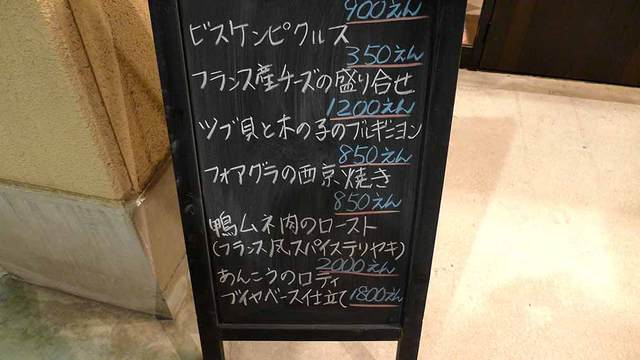 900えん
ビスケンピクルス
350えん
フランス産チーズの盛り合せ
1200えん
ツブ貝と木の子のブルギニヨン
850えん
フォアグラの西京焼き
850えん
鴨ムネ肉のロースト
(フランス風スパイステリヤキ)
2000えん
あんこうのロティ
ブイヤベース仕立て 1800えん